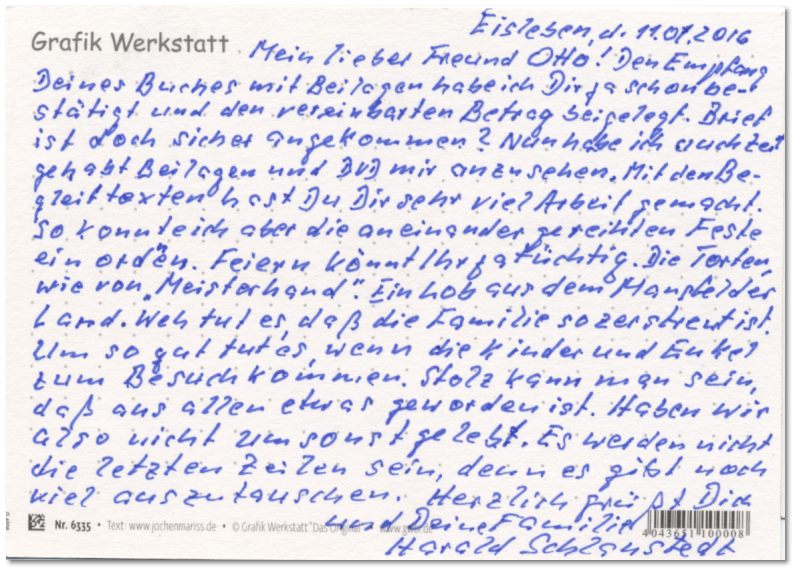 Eisleben, d. 11.07.2016
Grafik Werkstatt
Mein lieber Freund Otto! Den Empfang
Deines Buches mit Beilagen habe ich Dir ja schon be-
stätigt und den vereinbarten Betrag beigelegt. Brief
ist doch sicher angekommen? Nun habe ich auch Zeit
gehabt Beilagen und DVD mir anzusehen. Mit den Be-
gleittexten hast Du Dir sehr viel Arbeit gemacht.
So konnte ich aber die aneinander gereihten Feste
ein orden. Feiern könnt Ihr ja tüchtig. Die Torten,
wie von „Meisterhand". Ein hob aus dem Mansfelder
Land. Weh tut es, daß die Familie so zerstreut ist.
Um so gut tut es, wenn die Kinder und Enkel
zum Besuch kommen. Stolz kann man sein,
daß aus allen etwas geworden ist. Haben wir
also nicht umsonst gelebt. Es werden nicht
die letzten Zeilen sein, denn es gibt noch
viel auszutauschen. Herzlich grüßt Dich
und Deine Familie
Harald Schlanstedt
Nr. 6335 • Text: www.jochenmariss.de • © Grafik Werkstatt "Das Original" •
4 043651 100008